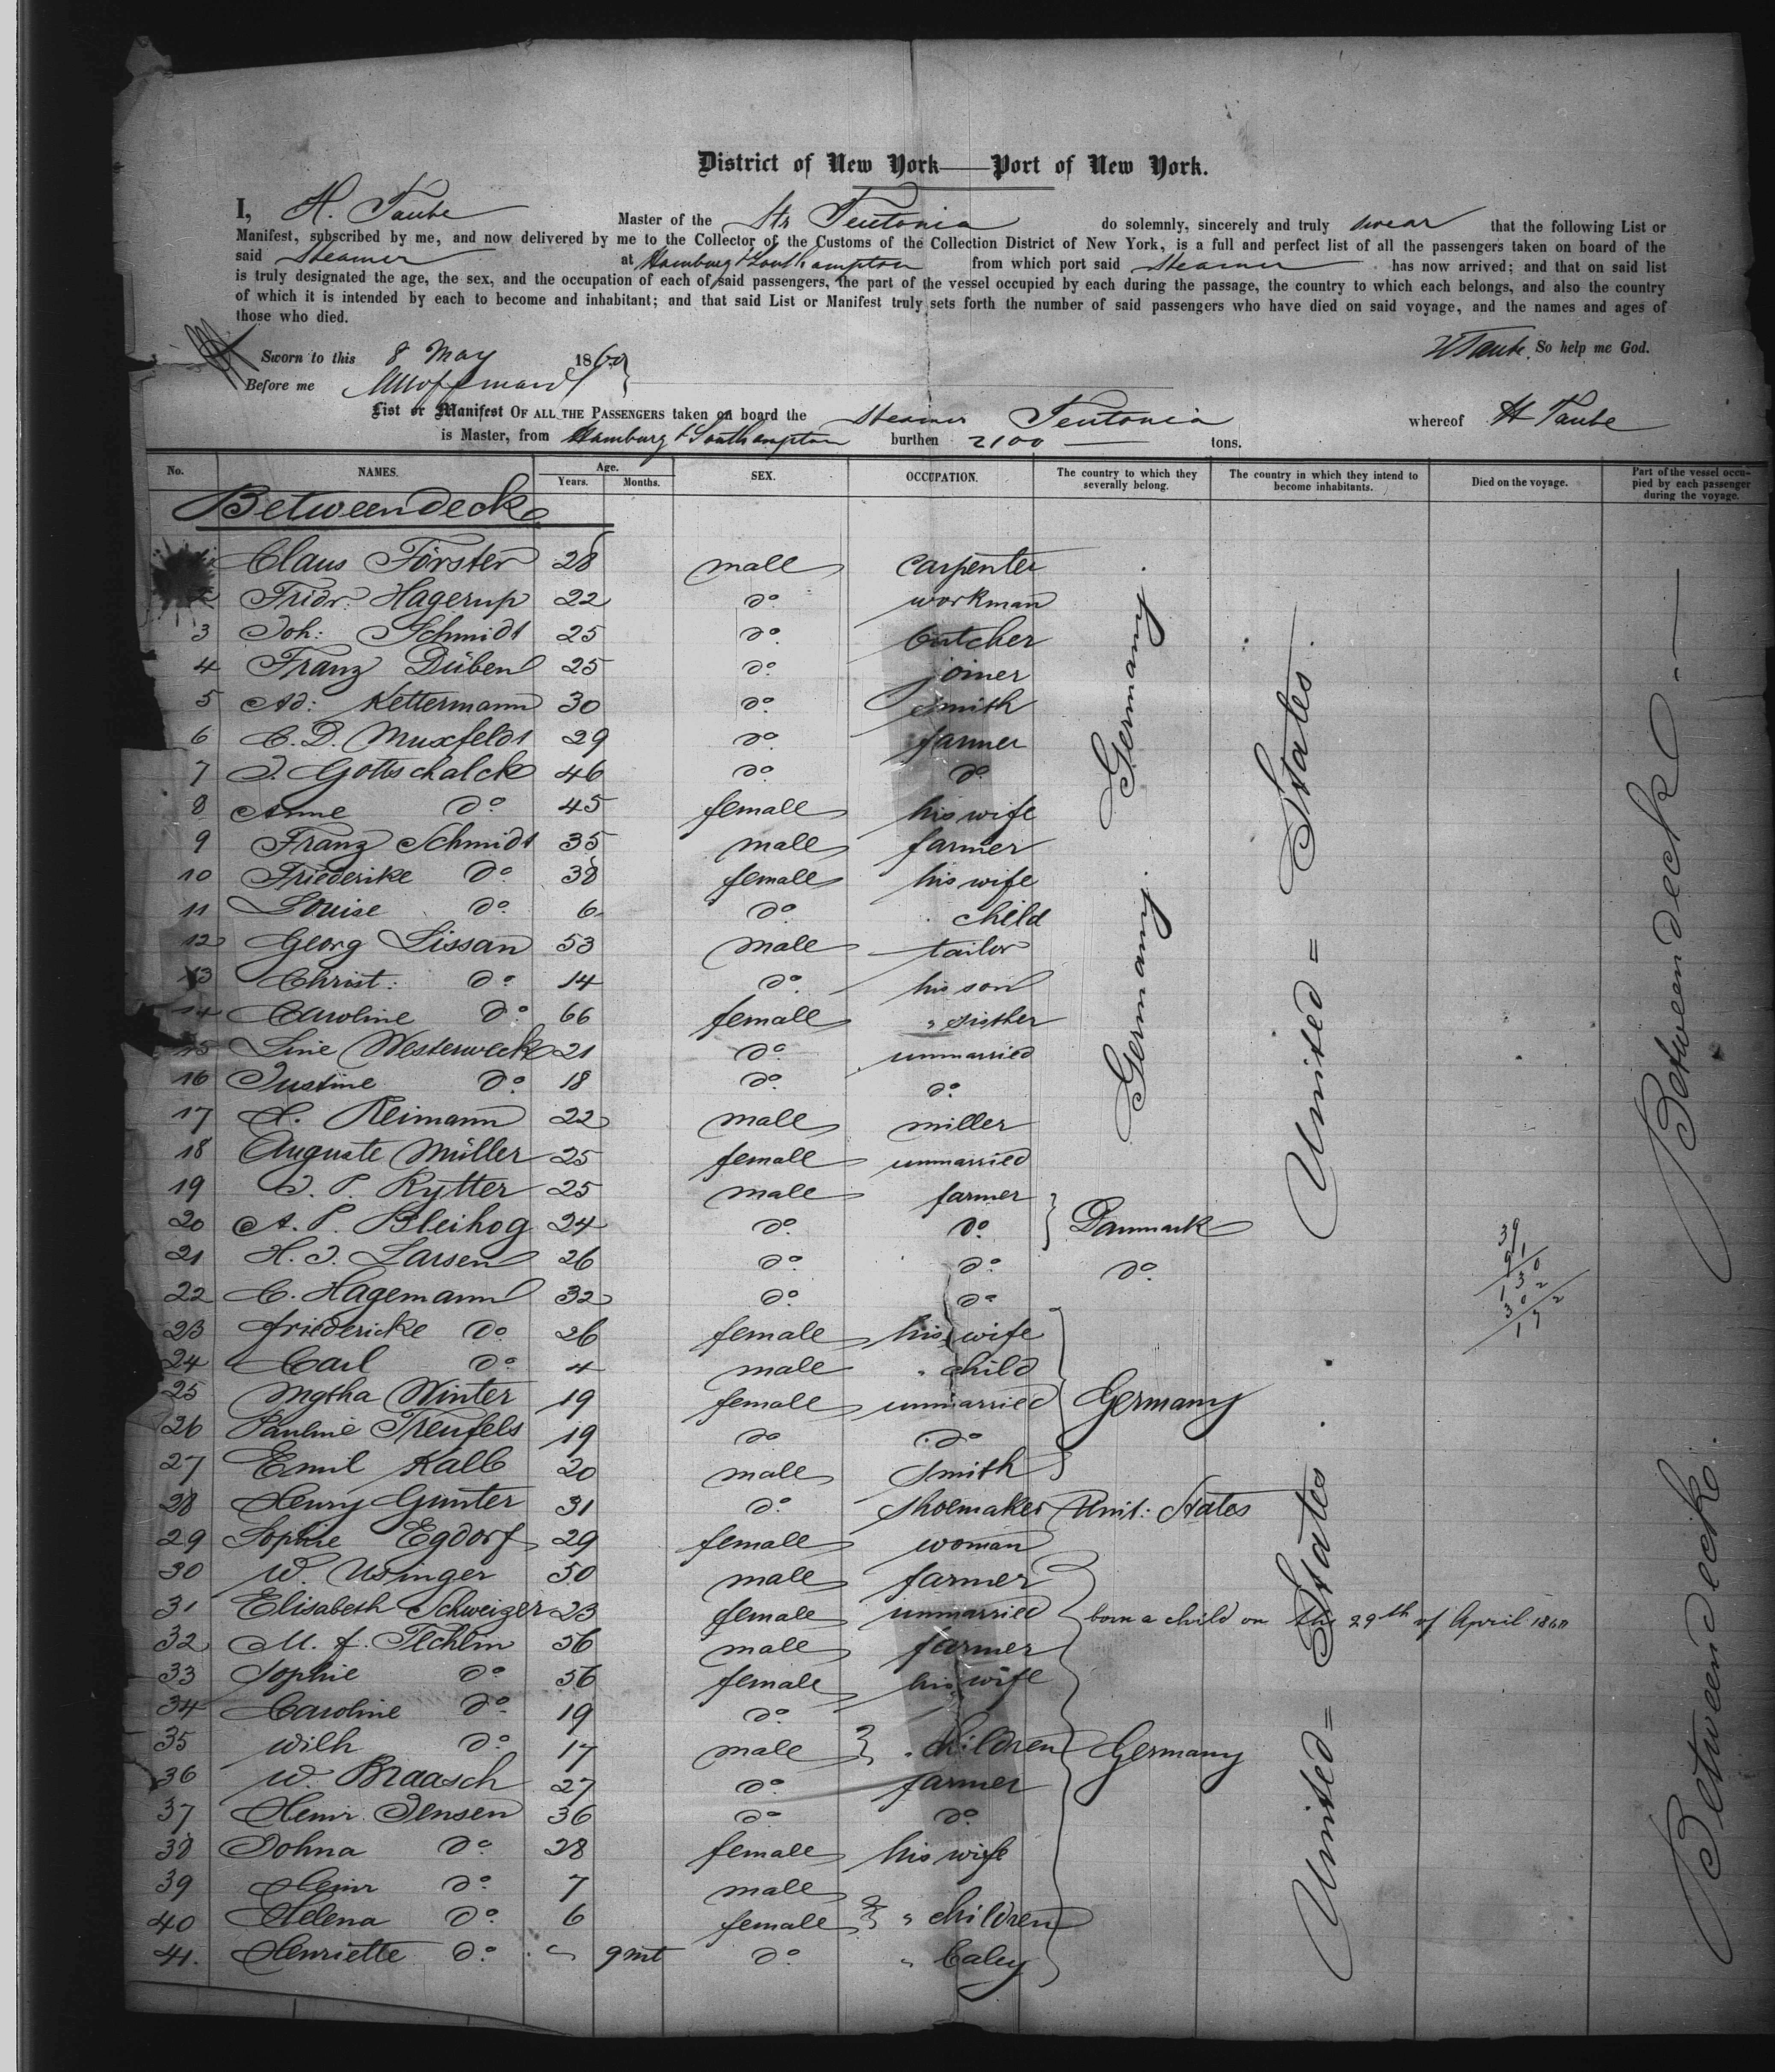 District of New York—Port of New York.
I, H. Taube Master of the Str Teutonia do solemnly, sincerely and truly swear that the following List or
Manifest, subscribed by me, and now delivered by me to the Collector of the Customs of the Collection District of New York, is a full and perfect list of all the passengers taken on board of the
said Steamer at Hamburg & Southampton from which port said Steamer has now arrived; and that on said list
is truly designated the age, the sex, and the occupation of each of said passengers, the part of the vessel occupied by each during the passage, the country to which each belongs, and also the country
of which it is intended by each to become and inhabitant; and that said List or Manifest truly sets forth the number of said passengers who have died on said voyage, and the names and ages of
those who died.
HTaube. So help me God.
Sworn to this 8 May 1860
Before me
List or Manifest OF ALL THE PASSENGERS taken on board the Steamer Teutonia whereof H Taube
is Master, from Hamburg & Southampton burthen 2100 tons.
No. NAMES. Age. Years. Months. SEX. OCCUPATION. The country to which they severally belong. The country in which they intend to become inhabitants. Died on the voyage. Part of the vessel occupied by each passenger during the voyage.
Betweendeck
Claus Förster 28 male carpenter
2 Fridr: Hagerup 22 do workman
3 Joh: Schmidt 25 do butcher
4 Franz Düben 25 do joiner
5 Ad: Kettermann 30 do smith
6 C. D. Muxfeldt 29 do farmer
7 J. Gottschalck 46 do do
8 Anne do 45 female his wife
9 Franz Schmidt 35 male farmer
10 Friederike do 38 female his wife
11 Louise do 6 do child
12 Georg Lissan 53 male tailor
13 Christ: do 14 do his son
14 Caroline do 66 female " sisther
15 Line Westerweck 21 do unmarried
16 Justine do 18 do do
17 H. Reimann 22 male miller
18 Auguste Müller 25 female unmarried
19 J. P. Rytter 25 male farmer
20 A. P. Bleihog 24 do do Danmark
21 H. J. Larsen 26 do do do
22 C. Hagemann 32 do do
23 friedericke do 26 female his wife
24 Carl do 4 male " child
25 Mgtha Winter 19 female unmarried Germany
26 Pauline Treufels 19 do do
27 Emil Kalb 20 male smith
28 Henry Gunter 31 do shoemaker Unit: States
29 Sophie Egdorf 29 female woman
30 W. Usinger 50 male farmer
31 Elisabeth Schweizer 23 female unmarried born a child on the 29th of April 1860
32 M. f. 56 male farmer
33 Sophie do 56 female his wife
34 Caroline do 19 do
35 Wilh do 17 male " children Germany
36 W. Braasch 27 do farmer
37 Heinr. Jensen 36 do do
38 Johna do 28 female his wife
39 Heinr do 7 male
40 Helena do 6 female " children
41. Henriette do 9 mt do " baby
Germany. Germany
United = States.
United = States.
Betweendeck
Betweendeck.
39
91
130